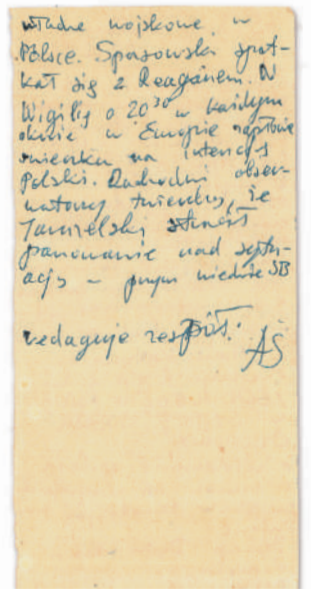 władze wojskowe w
Polsce. Spasowski spot-
kał się z Reaganem. W
Wigilię o 20³⁰ w każdym
oknie w Europie zapłonie
świeczka na intencję
Polski. Zachodni obser-
watorzy twierdzą, że
Jaruzelski stracił
panowanie nad sytu-
acją – prym wiedzie SB
redaguje zespół.
AŚ